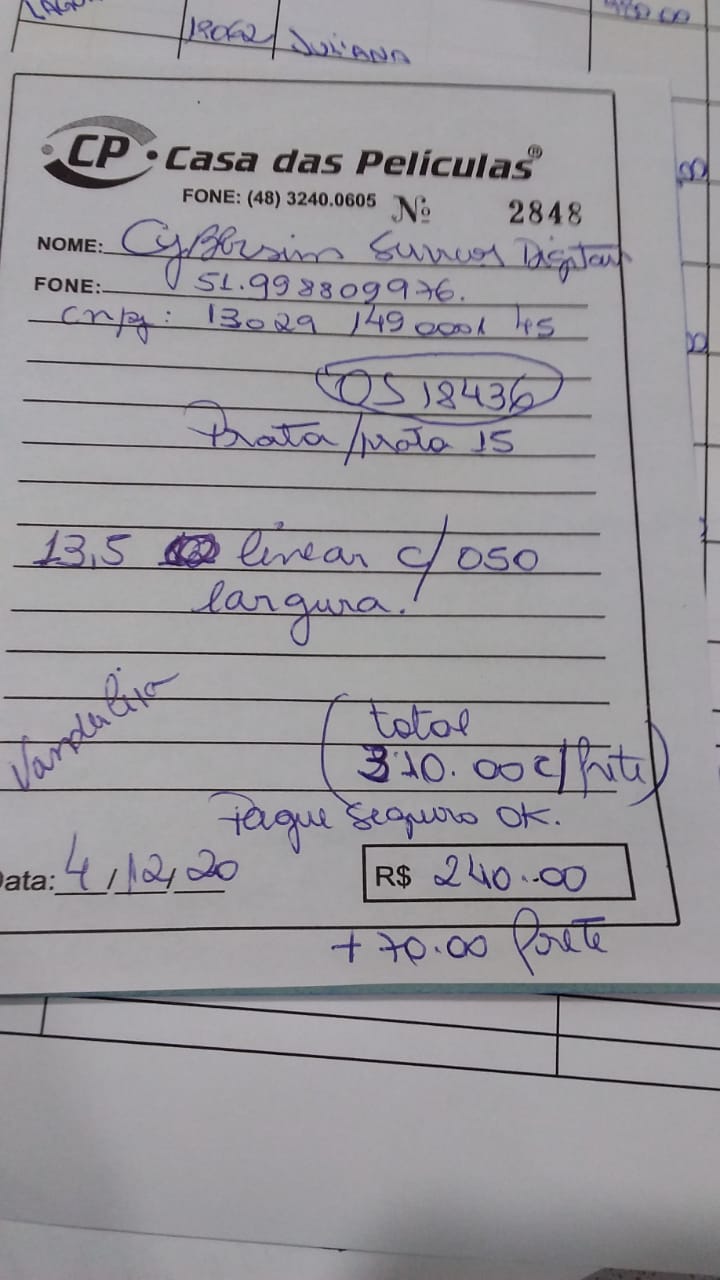 19062 JULIANA
CP • Casa das Películas®
FONE: (48) 3240.0605 Nº 2848
NOME: CyBersim Digital
FONE: 51.998809976.
cnpj: 13029 149 0001 45
OS 18436
Prata/prata 15
13,5 linear c/ 050
largura.
total
310.00 c/ frete
Pague Seguro OK.
Data: 4/12/20 R$ 240.00
+ 70.00 frete